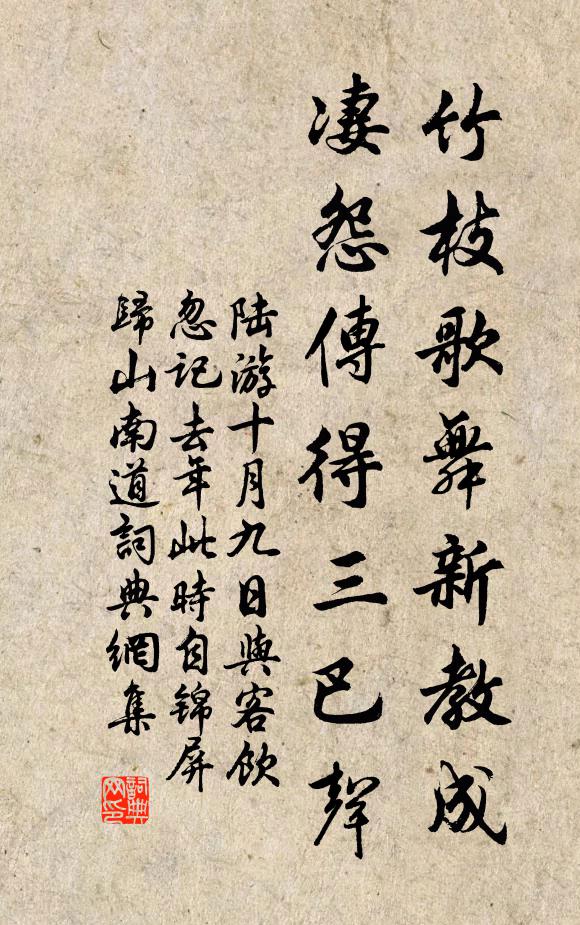 竹枝歌舞新教成
凄怨傳得三巴聲
陆游十月九日與客飲
忽記去年此時自锦屏
歸山南道詞典網集
詞典网印